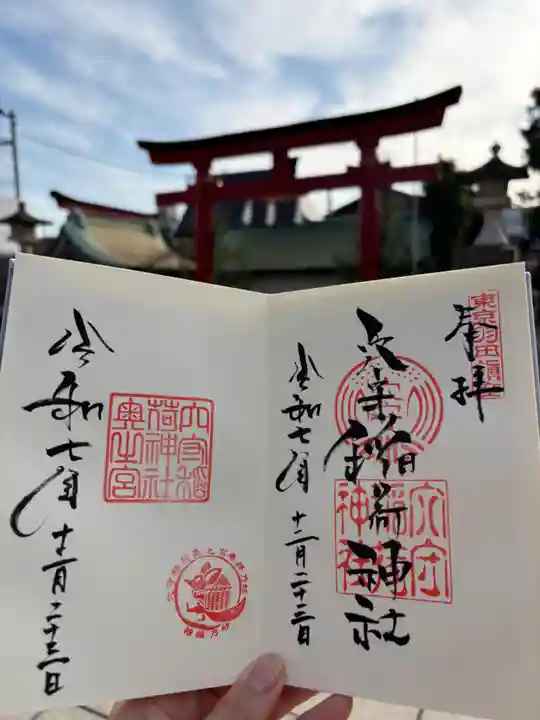 東京羽田鎮
奉拝
穴守稲荷神社
穴守
稲荷
神社
令和七年十二月二十三日
穴守稲
荷神社
奥之宮
令和七年十二月二十三日